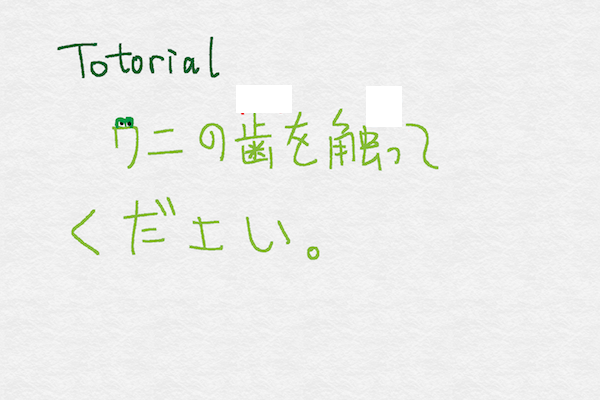 Totorial
ワニの歯を触って
ください。